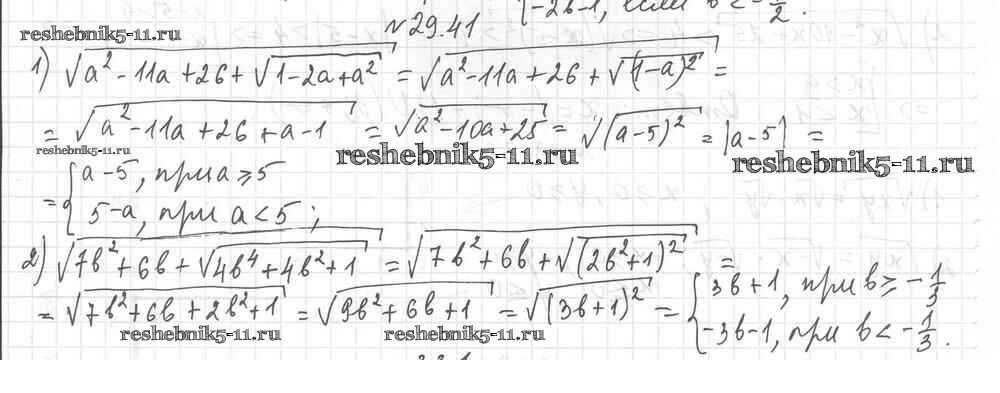 {-2b-1, если b < -1/2.
reshebnik5-11.ru
№29.41
1) √(a² - 11a + 26 + √(1-2a+a²)) = √(a² - 11a + 26 + √((1-a)²)) =
= √(a² - 11a + 26 + a - 1) = √(a² - 10a + 25) = √((a-5)²) = |a-5| =
reshebnik5-11.ru reshebnik5-11.ru reshebnik5-11.ru
= { a-5, при a ≥ 5
5-a, при a < 5;
2) √(7b² + 6b + √(4b⁴ + 4b² + 1)) = √(7b² + 6b + √((2b²+1)²)) =
= √(7b² + 6b + 2b² + 1) = √(9b² + 6b + 1) = √((3b+1)²) = { 3b+1, при b ≥ -1/3
-3b-1, при b < -1/3.
reshebnik5-11.ru reshebnik5-11.ru